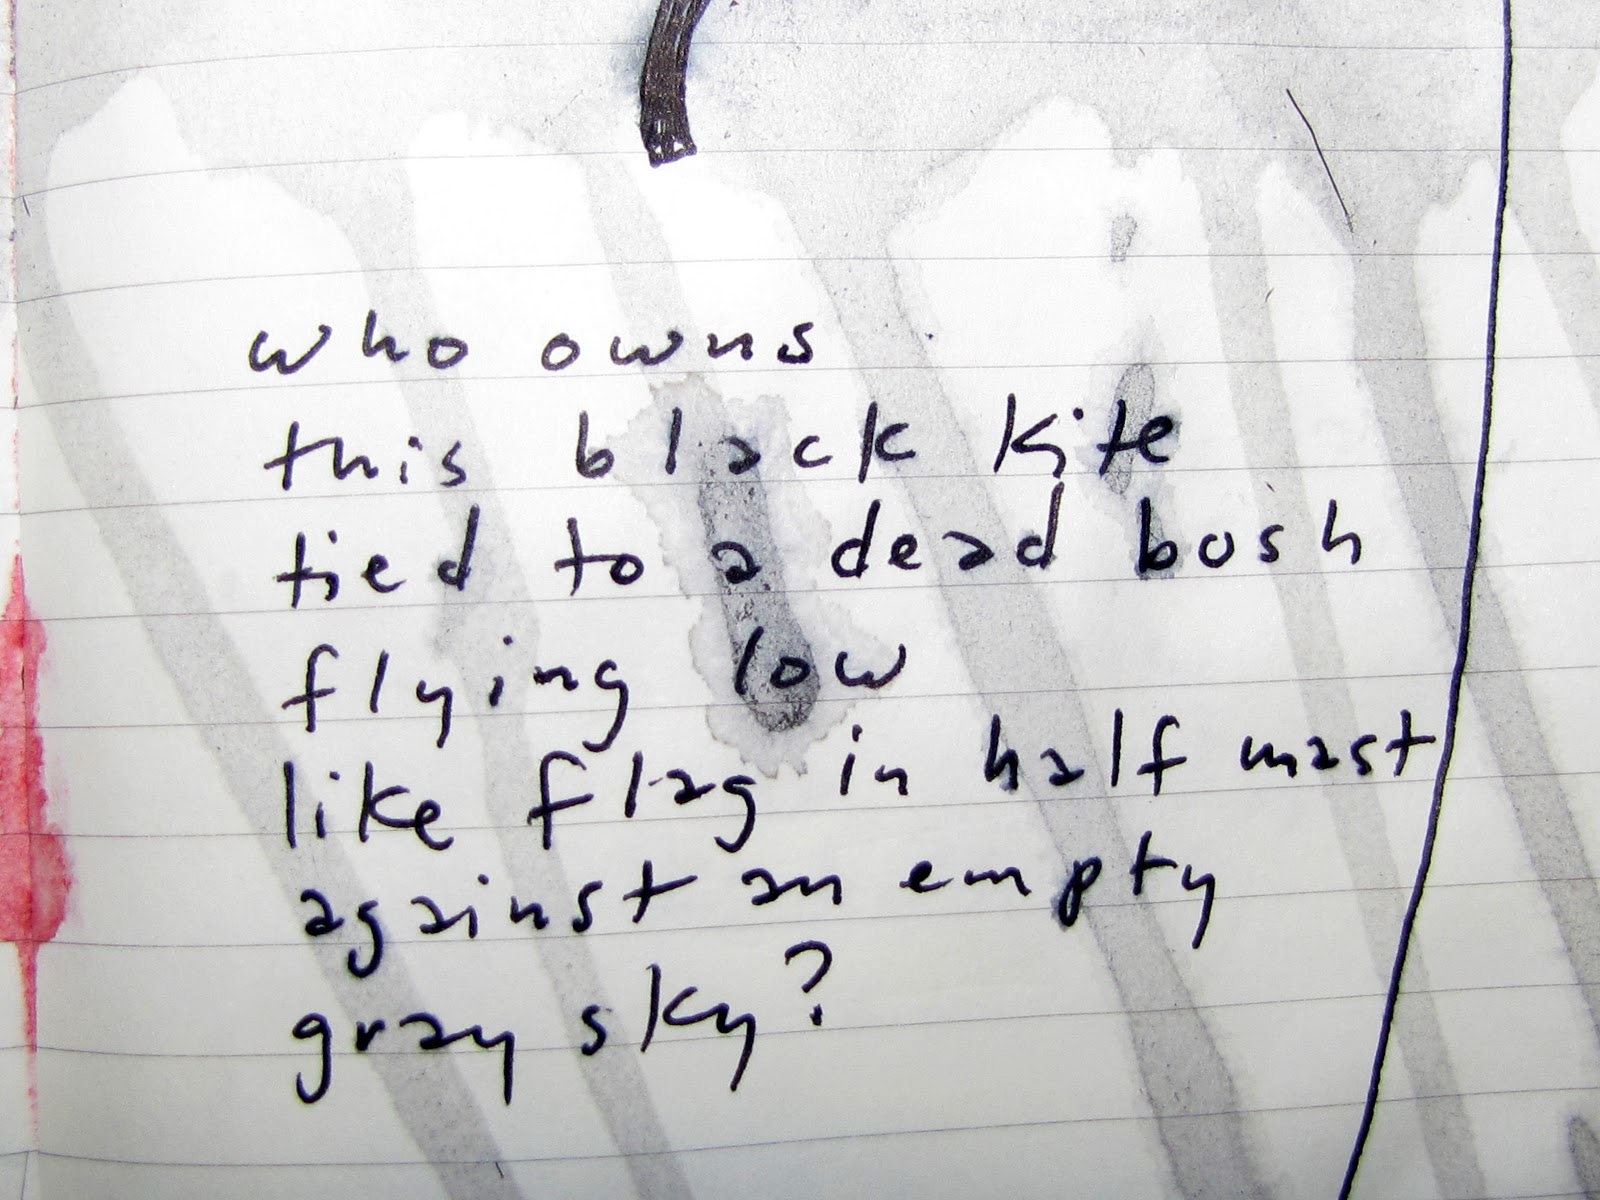 who owns
this black kite
tied to a dead bush
flying low
like flag in half mast
against an empty
gray sky?